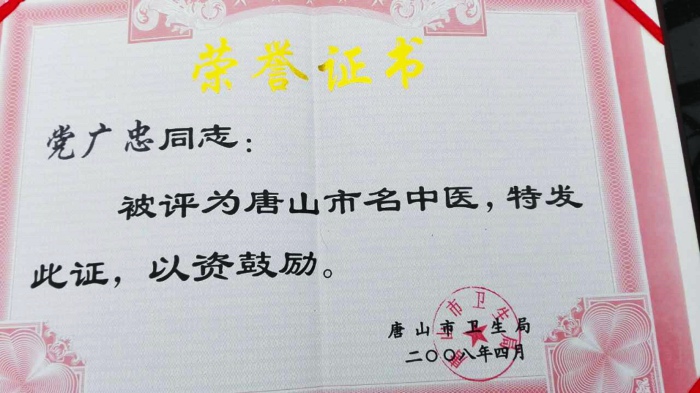 荣誉证书
党广忠同志：
被评为唐山市名中医，特发
此证，以资鼓励。
唐山市卫生局
二〇〇八年四月
唐山市卫生局